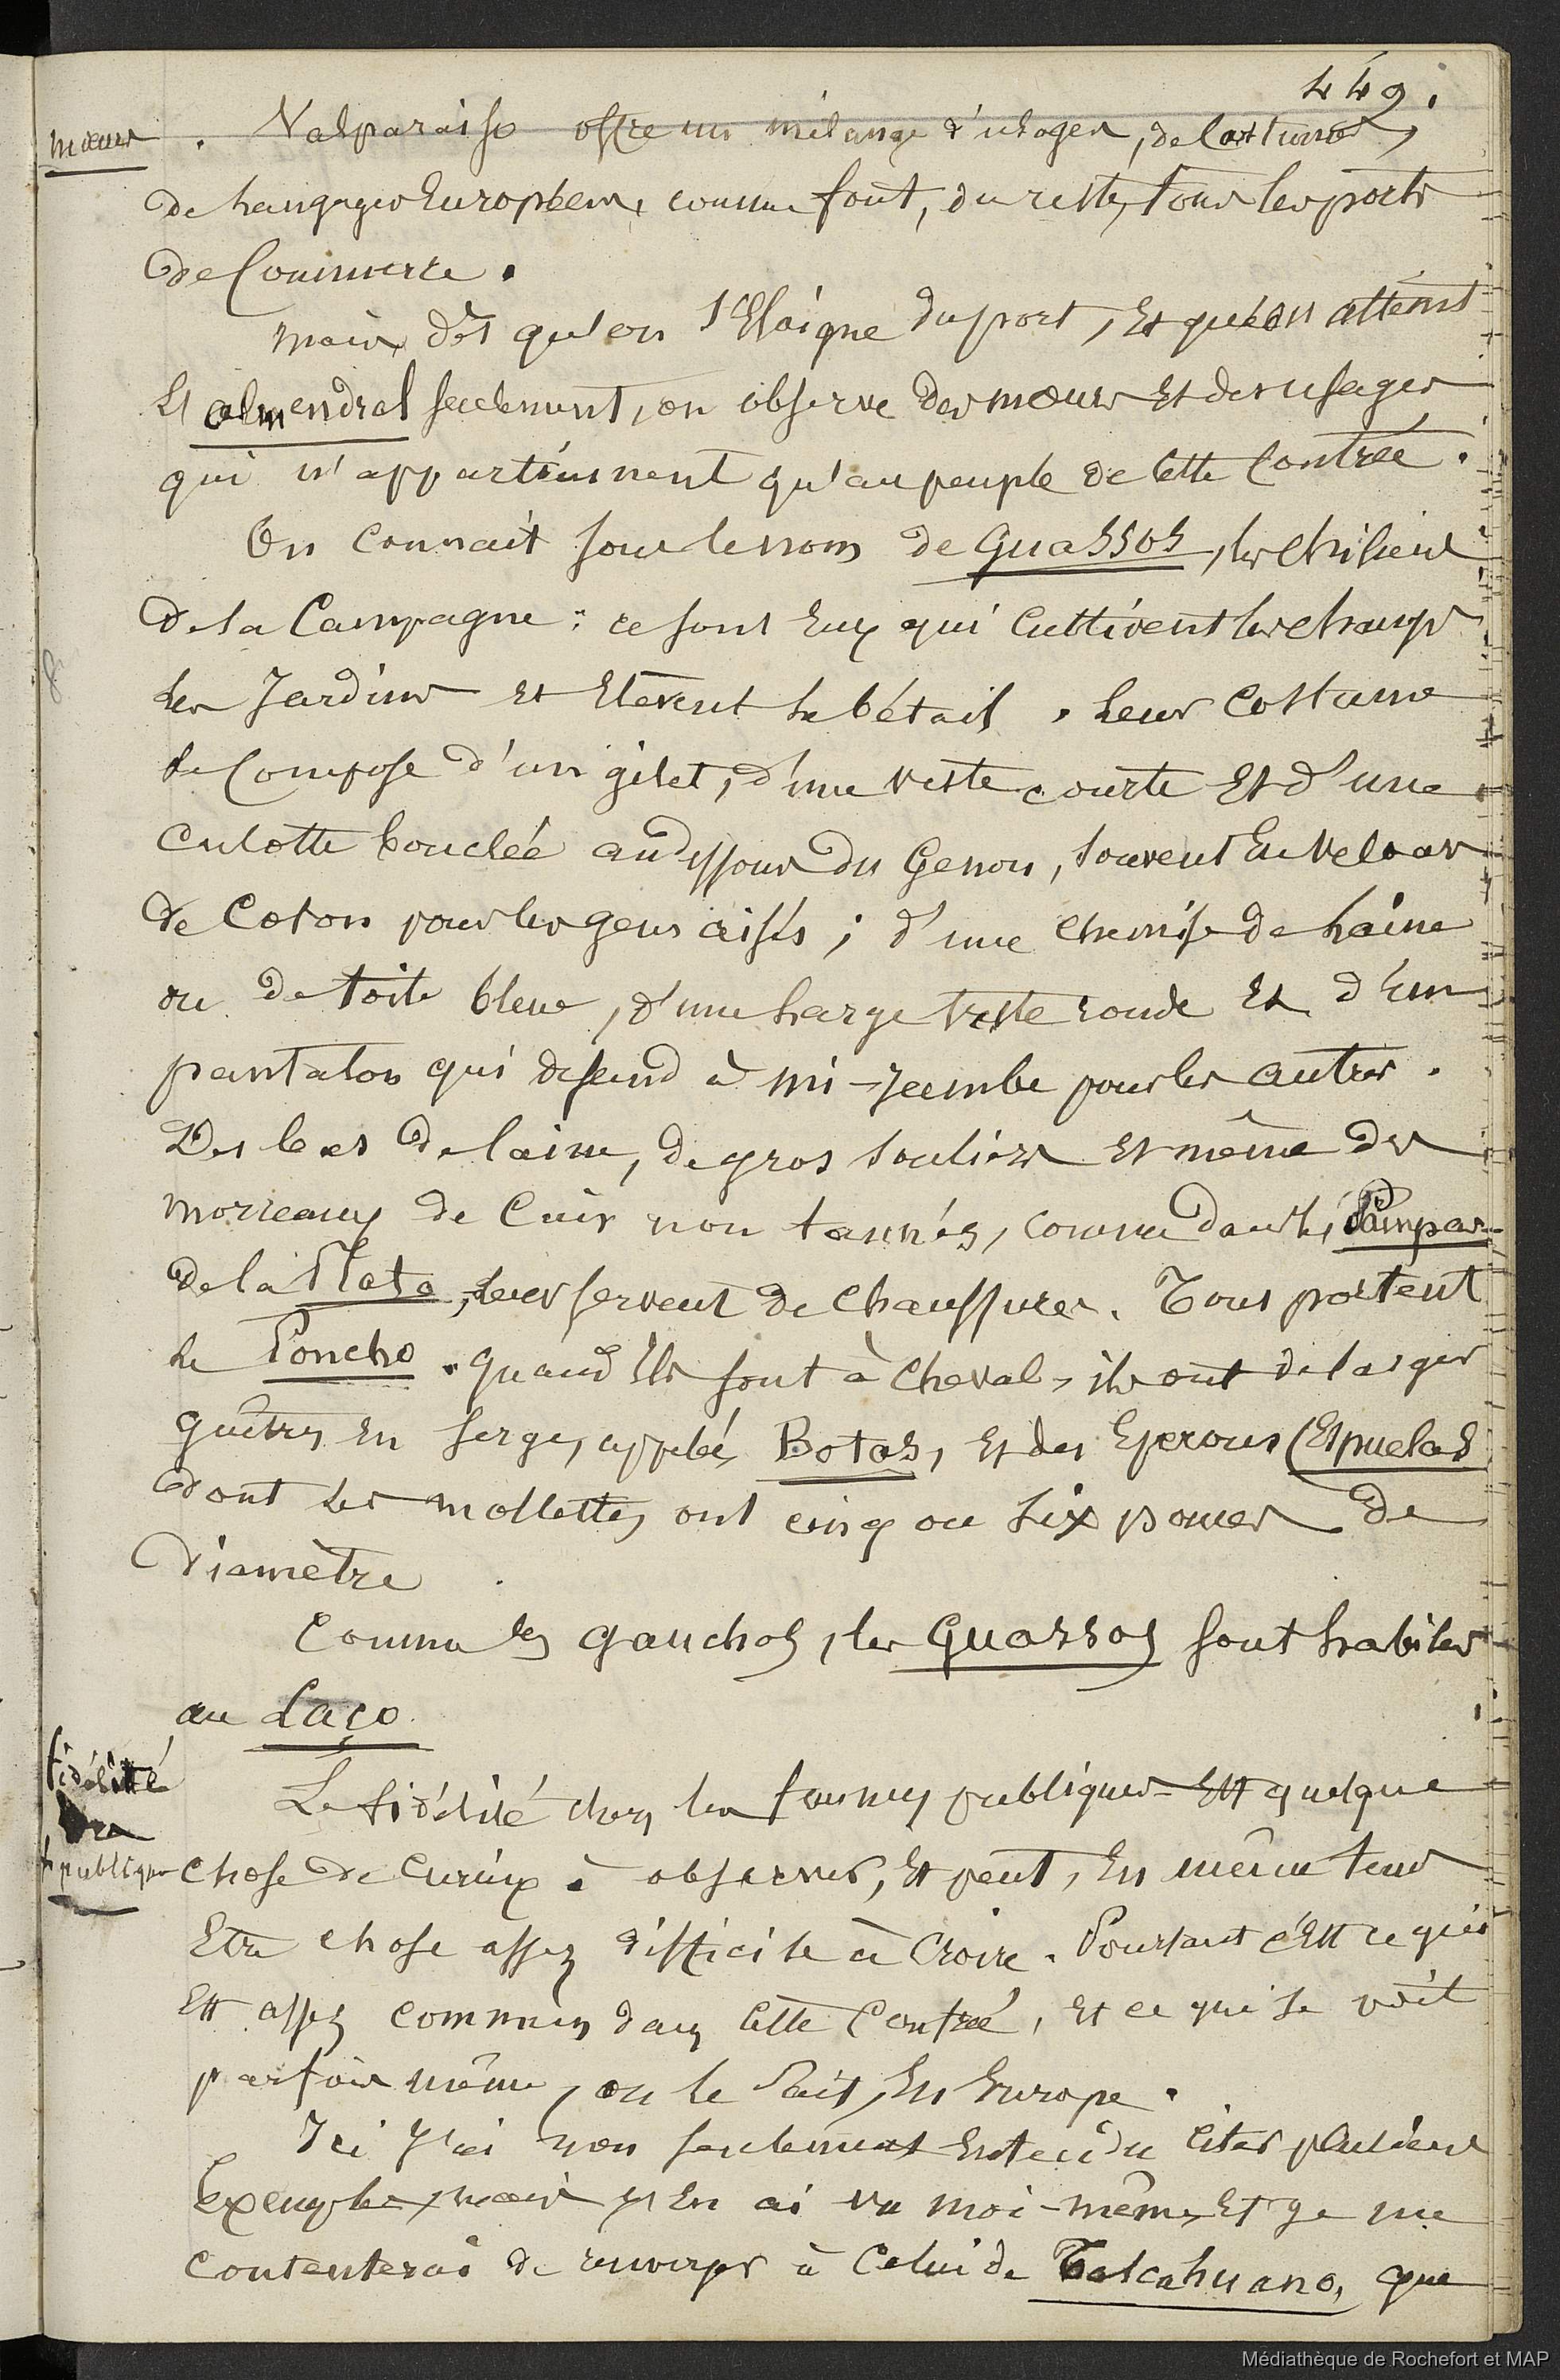 449.
mœurs
Valparaiso offre un mélange d'usages, de Costumes,
de Langages Européens, comme font, du reste, tous les ports
de Commerce.
mais, dès qu'on s'Eloigne du port, Et qu'on atteint
El almendral seulement, on observe des mœurs Et des usages
qui n'appartiennent qu'au peuple de Cette Contrée.
On Connait sous le nom de Guassos, les Chiliens
De la Campagne : ce sont Eux qui Cultivent les champs
Les Jardins Et Elèvent le bétail. Leur Costume
Se Compose d'un gilet, d'une veste courte Et d'une
Culotte bouclée au dessous du Genou, souvent En velours
de Coton pour les gens aisés ; d'une Chemise de Laine
ou de toile bleue, d'une large veste ronde Et d'un
pantalon qui descend à mi-Jambe pour les autres.
Des bas de laine, de gros souliers Et même des
morceaux de Cuir non tannés, comme dans les Pampas
de la Plata, leur servent de Chaussures. Tous portent
Le Poncho. quand Ils sont à Cheval, ils ont de larges
guêtres En serge, appelés Botas, Et des Eperons (Espuelas
dont les mollettes ont cinq ou six pouces de
Diamètre
Comme les gauchos, les Guassos sont habiles
au Laço.
fidélité
publique
La fidélité chez les femmes publiques Est quelque
chose de Curieux à observer, Et peut, En même tems
Etre chose assez difficile à Croire. Pourtant c'Est ce qui
Est assez commun dans Cette Contrée, Et ce qui se voit
parfois même, on le sait, En Europe.
Ici J'ai non seulement Entendu Citer plusieurs
Exemples, mais J'En ai vu moi-même, Et Je me
Contenterai de renvoyer à Celui de Talcahuano, que
Médiathèque de Rochefort et MAP